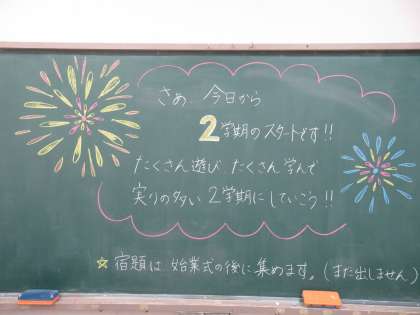 さあ 今日から
2学期のスタートです!!
たくさん遊び たくさん学んで
実りの多い 2学期にしていこう!!
☆ 宿題は 始業式の後に集めます。(まだ出しません)